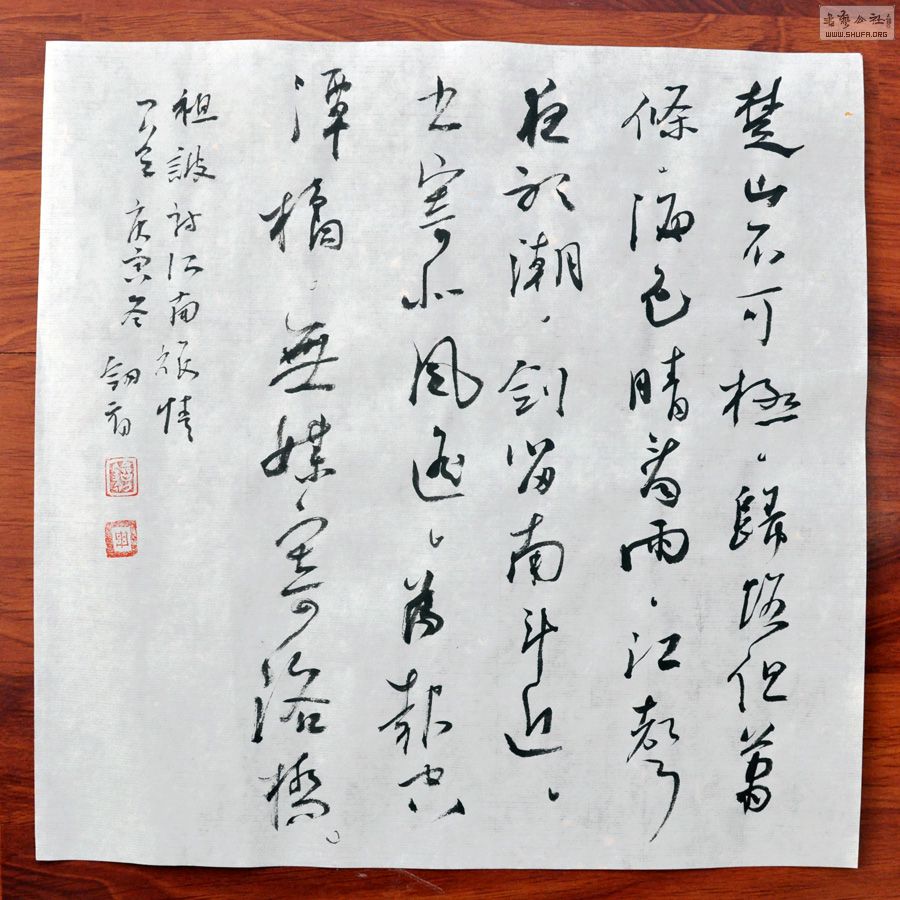 書藝公社
WWW.SHUFA.ORG
楚山不可極、歸路但蕭
條、海色晴看雨、江聲
夜聽潮、劍留南斗近、
書寄北風遙、為報空
潭橘、無媒寄洛橋。
祖詠詩江南旅情
庚寅冬